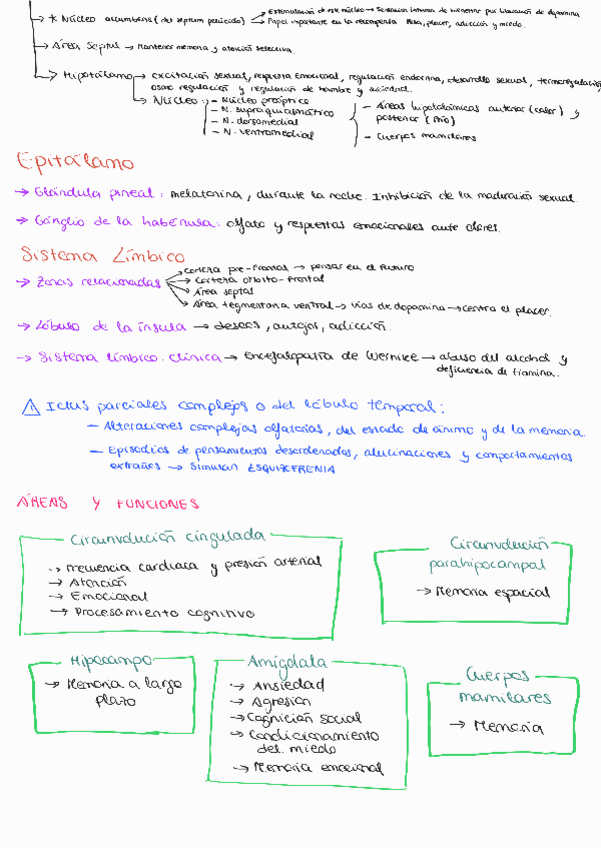 → * Núcleo accumbens (del septum pelúcido) → Estimulación de este núcleo → Sensación intensa de bienestar por liberación de dopamina
→ Papel importante en la recompensa Risa, placer, adicción y miedo.
→ Área Septal → Mantener memoria y atención selectiva.
→ Hipotálamo → excitación sexual, respuesta emocional, regulación endocrina, desarrollo sexual, termorregulación,
osmo regulación y regulación de hambre y saciedad.
→ Núcleo: - Núcleo preóptico
- N. supraquiasmático
- N. dorsomedial
- N. ventromedial
- Áreas hipotalámicas anterior (calor) y
posterior (frío)
- Cuerpos mamilares
Epitálamo
→ Glándula pineal: melatonina, durante la noche. Inhibición de la maduración sexual.
→ Ganglio de la habénula: olfato y respuestas emocionales ante olores.
Sistema Límbico
→ Zonas relacionadas → corteza pre-frontal → pensar en el futuro
→ corteza orbito-frontal
→ Área septal
→ Área tegmentaria ventral → vías de dopamina → centra el placer.
→ Lóbulo de la ínsula → deseos, antojos, adicción.
→ Sistema límbico. clínica → Encefalopatía de Wernike → abuso del alcohol y
deficiencia de tiamina.
⚠ Ictus parciales complejos o del lóbulo temporal:
- Alteraciones complejas olfatorias, del estado de ánimo y de la memoria.
- Episodios de pensamientos desordenados, alucinaciones y comportamientos
extraños → Simulan ESQUIZOFRENIA
ÁREAS Y FUNCIONES
Circunvolución cingulada
→ Frecuencia cardiaca y presión arterial
→ Atención
→ Emocional
→ Procesamiento cognitivo
Circunvolución
parahipocampal
→ Memoria espacial
Hipocampo
→ Memoria a largo
plazo
Amígdala
→ Ansiedad
→ Agresión
→ Cognición social
→ Condicionamiento
del miedo
→ Memoria emocional
Cuerpos
mamilares
→ Memoria